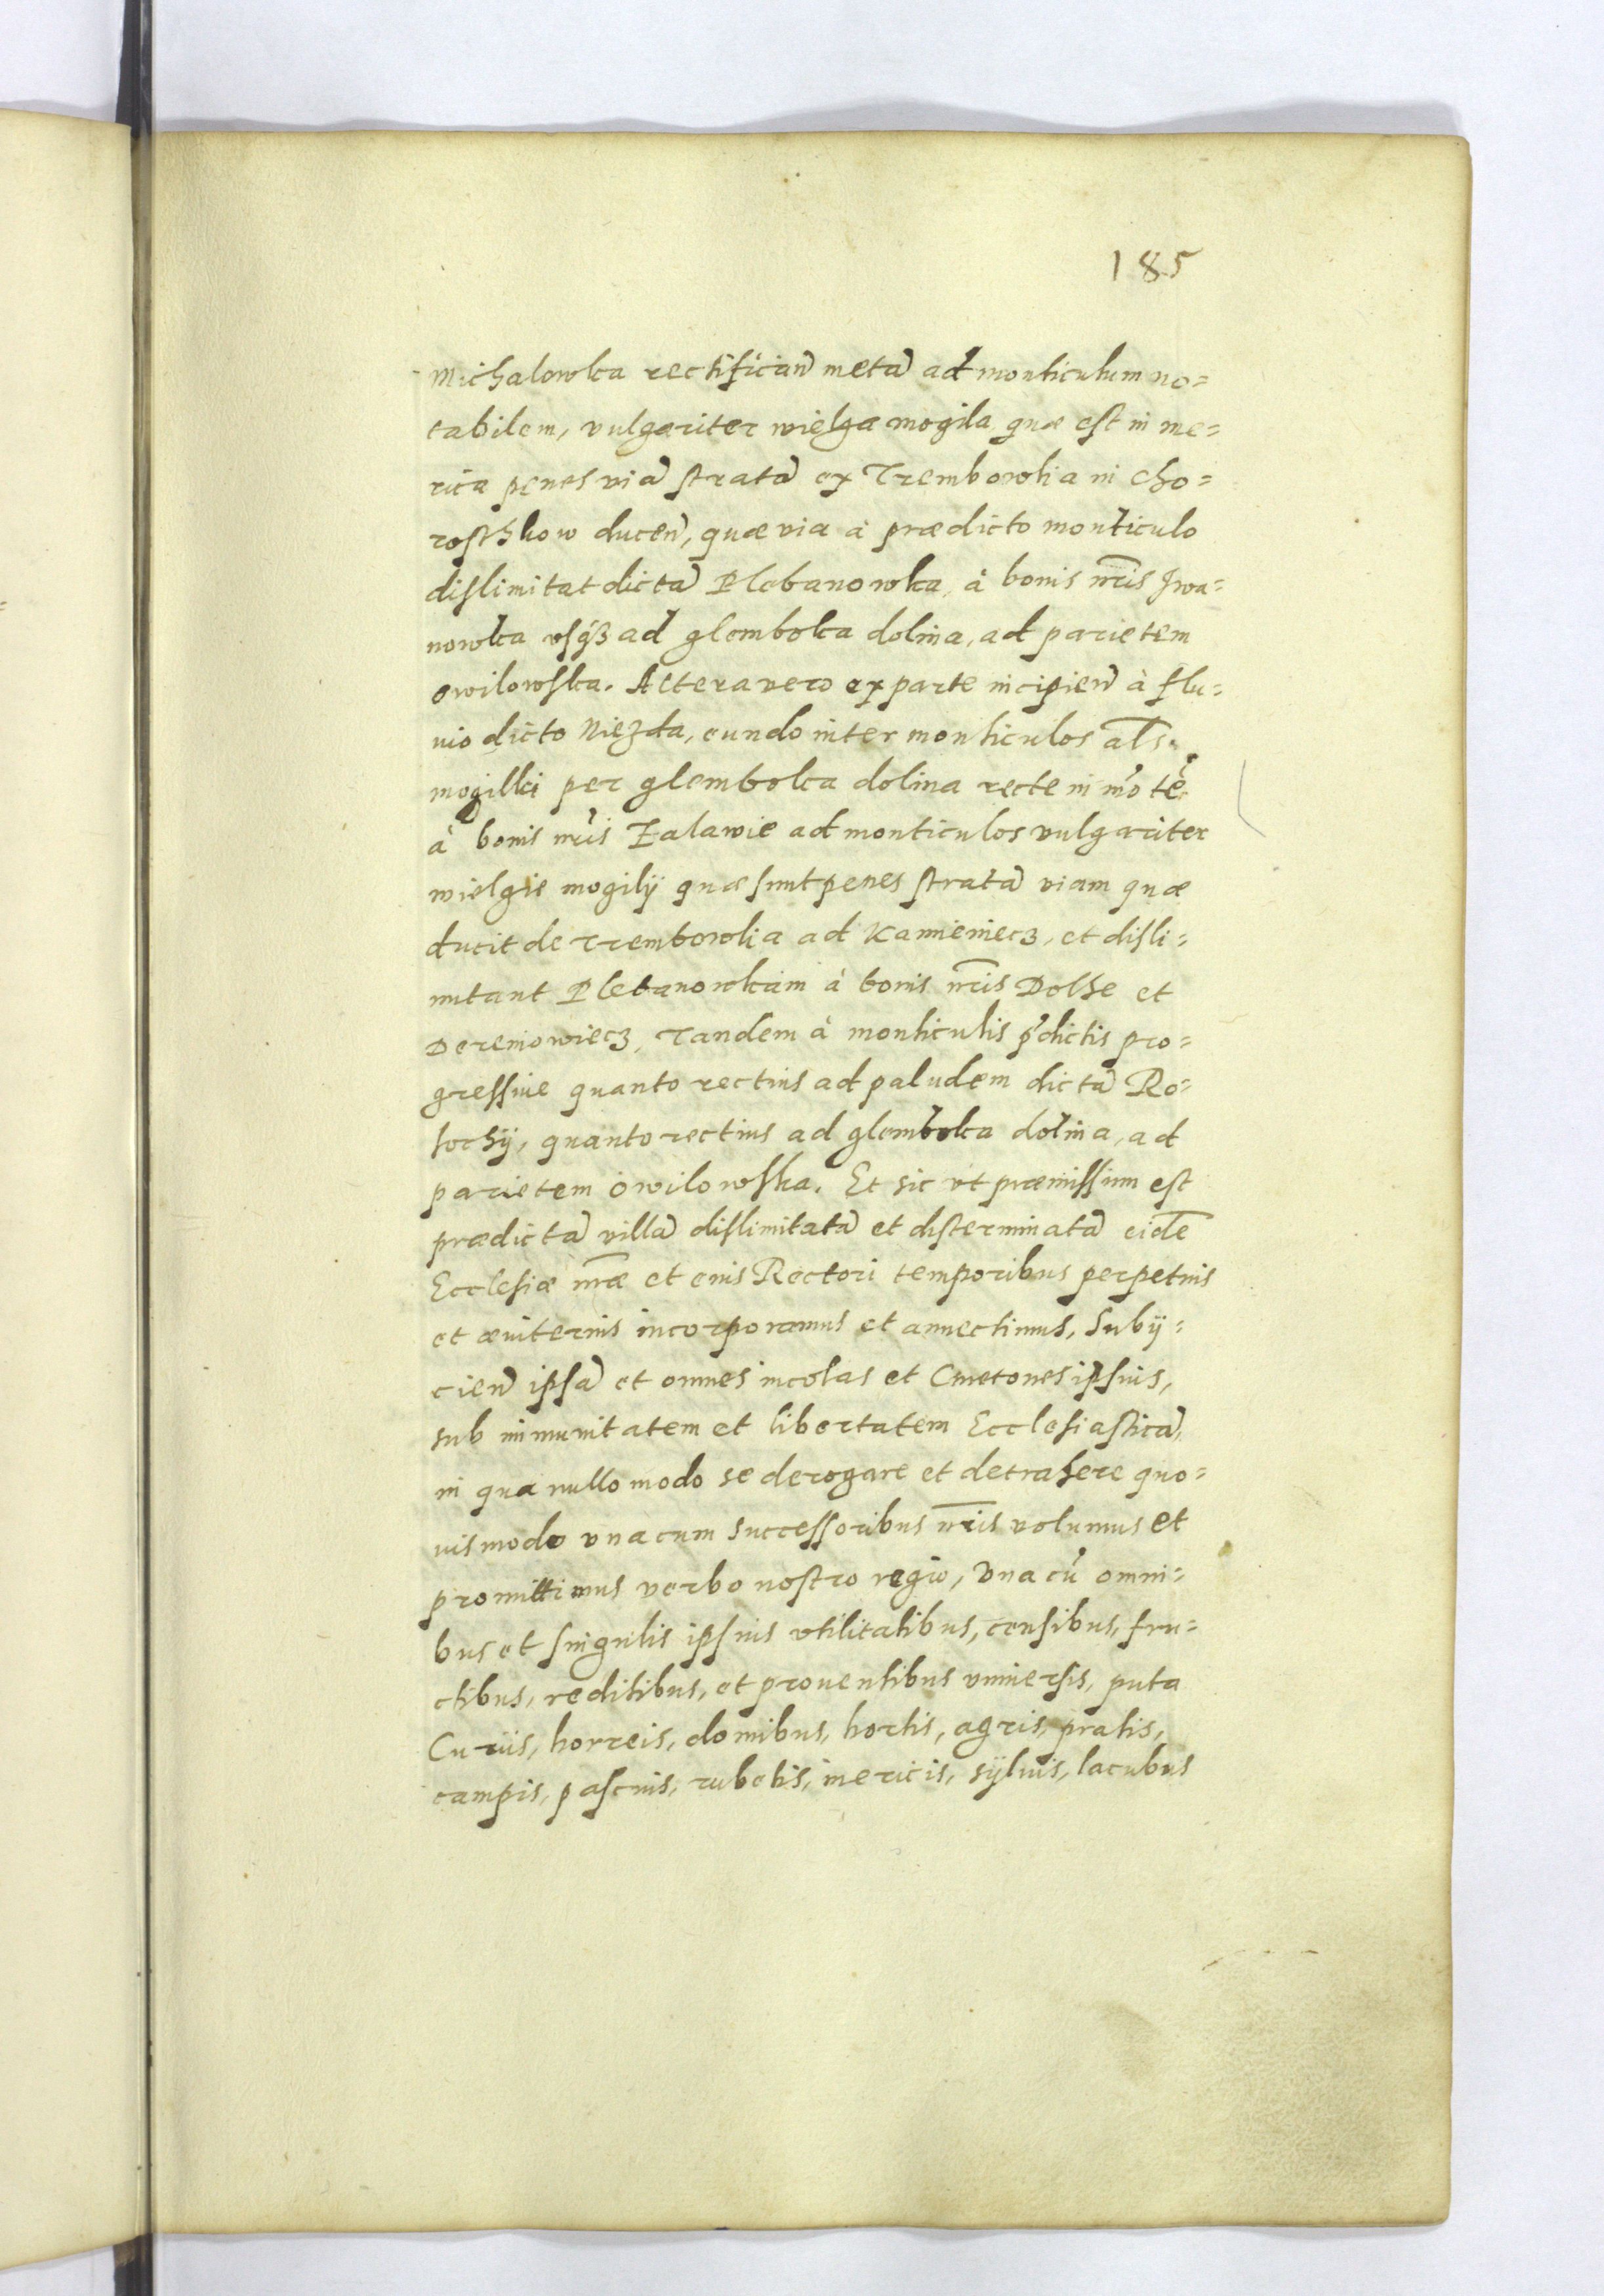 185
Michalowka rectifican̄ metā ad monticulum no=
tabilem, vulgariter wielga mogila quæ est in me=
rica penes viā stratā ex Trembowlia in Cho=
rostkow ducen̄, quæ via à prædicto monticulo
dislimitat dictā Plebanowka, à bonis nr̄is Iwa=
nowka usq3 ad glemboka dolina, ad parietem
owilowska. Altera vero ex parte incipien̄ à flu=
vio dicto Niezda, eundo inter monticulos al̄s
mogilki per glemboka dolina recte in
à bonis nr̄is Zalawie ad monticulos vulgariter
wielgie mogilÿ quæ sunt penes stratā viam quæ
ducit de Trembowlia ad Kamieniecz, et disli=
mitant Plebanowkam à bonis nr̄is Dolhe et
Dereniowiecz, Tandem à monticulis p̄dictis pro=
gressive quanto rectius ad paludem dictā Ro=
sochÿ, quanto rectius ad glemboka dolina, ad
parietem owilowska. Et sic ut præmissum est
prædictā villā dislimitatā et disterminatā eidē
Ecclesiæ nr̄æ et eius Rectori temporibus perpetuis
et æviternis incorporamus et annectimus, Subij=
cien̄ ipsā et omnes incolas et Cmetones ipsius,
sub immunitatem et libertatem Ecclesiasticā,
in qua nullo modo se derogare et detrahere quo=
vis modo una cum successoribus nr̄is volumus et
promittimus verbo nostro regio, Una cū omni=
bus et singulis ipsius utilitatibus, censibus, fru=
ctibus, reditibus, et proventibus universis, puta
Curiis, horreis, domibus, hortis, agris, pratis,
campis, pascuis, rubetis, mericis, sÿlvis, lacubus